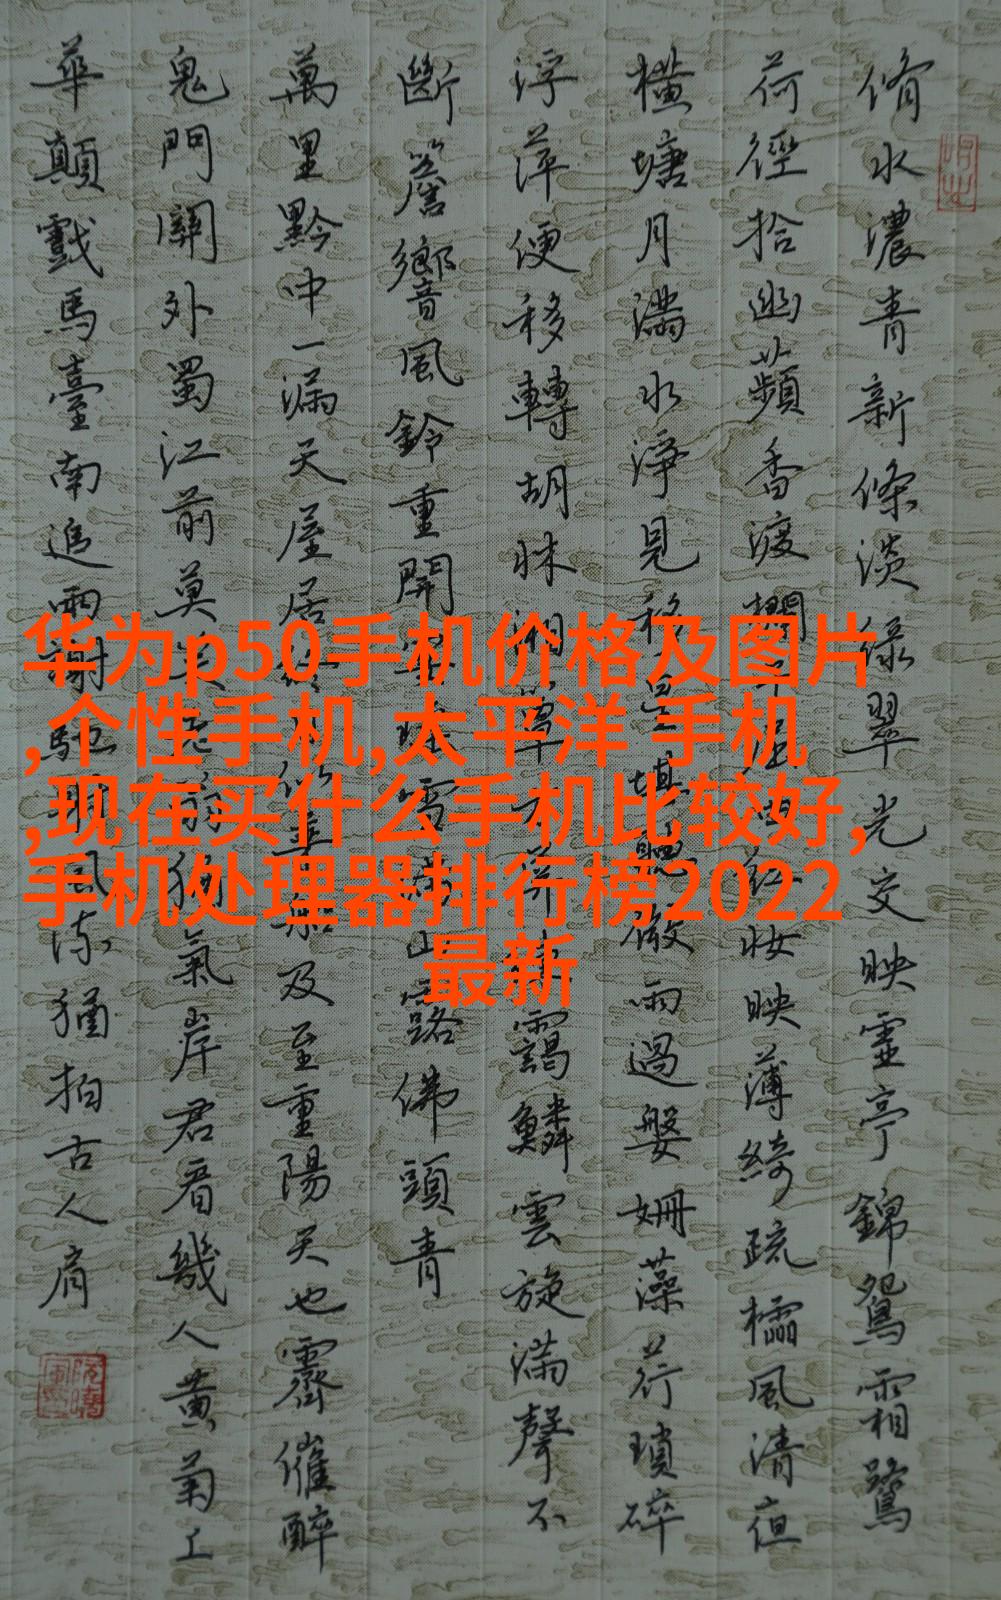 华为p50手机价格及图片
,个性手机,太平洋 手机
,现在买什么手机比较好,
手机处理器排行榜2022
最新
脩水濃青新條淡綠翠光交映虛亭錦鴛霜鷺
荷徑拾幽蘋香渡
紅妝映薄綺疏櫺風清夜
橫塘月滿水淨見移星堪聽徹雨過婆姍藻荇瑣碎
浮萍便移轉胡牀湘簟
靄鱗雲旋滿聲不
斷簷響風鈴重開
雪滿山露佛頭青
萬里黔中一漏天屋居終日似乘船及至重陽天也霽催醉
鬼門關外蜀江前莫笑老翁猶氣岸君看幾人黃菊上
華顛戲馬臺南追兩謝馳射風流猶拍古人肩